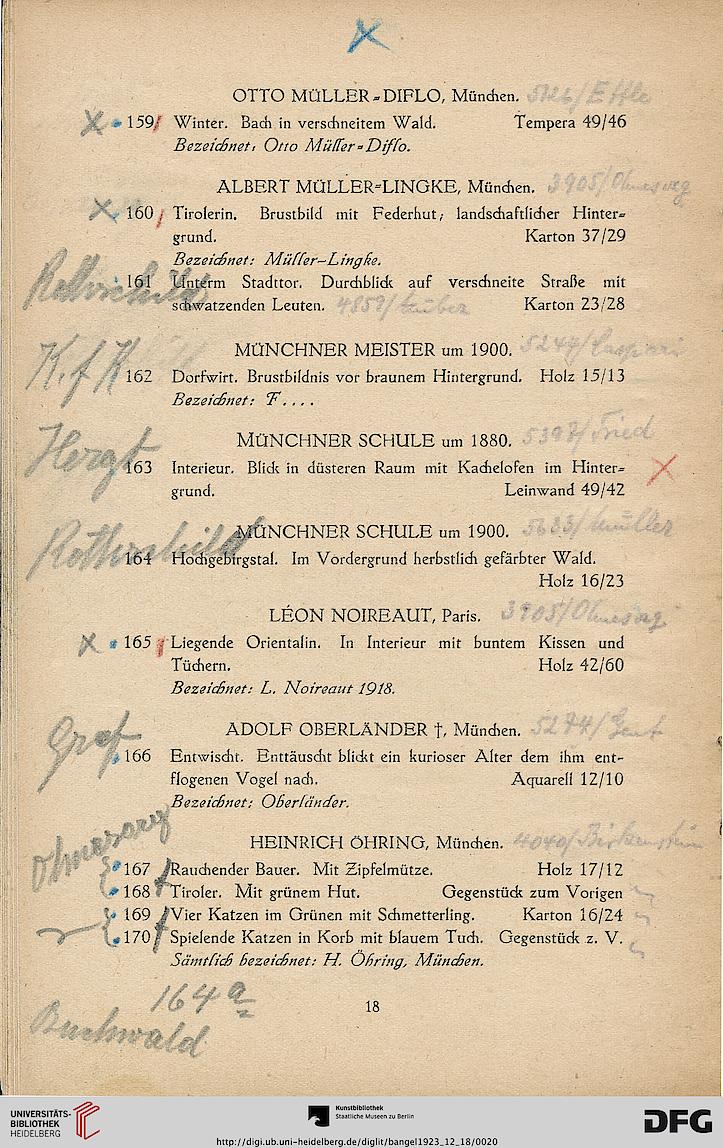 OTTO MÜLLER=DIFLO, München.
× 159 Winter. Bach in verschneitem Wald. Tempera 49/46
Bezeichnet: Otto Müller=Diflo.
ALBERT MÜLLER=LINGKE, München. 3905/
× 160 Tirolerin. Brustbild mit Federhut; landschaftlicher Hinter=
grund. Karton 37/29
Bezeichnet: Müller-Lingke.
Rothschild 161 Unterm Stadttor. Durchblick auf verschneite Straße mit
schwatzenden Leuten. 4859/ Karton 23/28
MÜNCHNER MEISTER um 1900. 5244/
K.f.K 162 Dorfwirt. Brustbildnis vor braunem Hintergrund. Holz 15/13
Bezeichnet: F....
MÜNCHNER SCHULE um 1880. Fried
Hergt 163 Interieur. Blick in düsteren Raum mit Kachelofen im Hinter= ×
grund. Leinwand 49/42
MÜNCHNER SCHULE um 1900. 5633/Müller
Rothschild 164 Hochgebirgstal. Im Vordergrund herbstlich gefärbter Wald.
Holz 16/23
LÉON NOIREAUT, Paris. 3905/
× 165 Liegende Orientalin. In Interieur mit buntem Kissen und
Tüchern. Holz 42/60
Bezeichnet: L. Noireaut 1918.
ADOLF OBERLÄNDER †, München. 5274/
Graf 166 Entwischt. Enttäuscht blickt ein kurioser Alter dem ihm ent-
flogenen Vogel nach. Aquarell 12/10
Bezeichnet: Oberländer.
HEINRICH ÖHRING, München. 4040/Birkenstein
167 Rauchender Bauer. Mit Zipfelmütze. Holz 17/12
168 Tiroler. Mit grünem Hut. Gegenstück zum Vorigen
169 Vier Katzen im Grünen mit Schmetterling. Karton 16/24
170 Spielende Katzen in Korb mit blauem Tuch. Gegenstück z. V.
Sämtlich bezeichnet: H. Öhring, München.
164 a
Buchwald
18
UNIVERSITÄTS-
BIBLIOTHEK
HEIDELBERG
Kunstbibliothek
Staatliche Museen zu Berlin
DFG
http://digi.ub.uni-heidelberg.de/diglit/bangel1923_12_18/0020